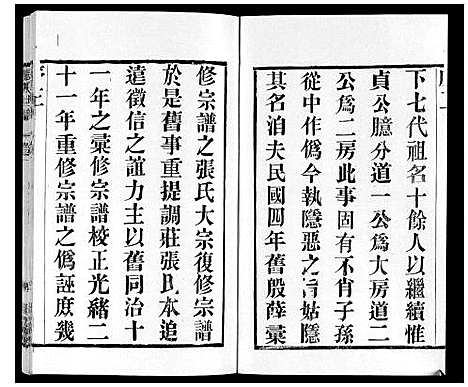 下七代祖名十餘人以繼續惟
貞公臆分道一公為大房道二
公為二房此事固有不肖子孫
從中作偽今執隱惡之旨姑隱
其名洎夫民國四年舊殷薛橐
修宗譜之張氏大宗復修宗譜
於是舊事重提調莊張氏本追
遠徵信之誼力主以舊同治十
一年之橐修宗譜校正光緒二
十一年重修宗譜之偽誣庶幾